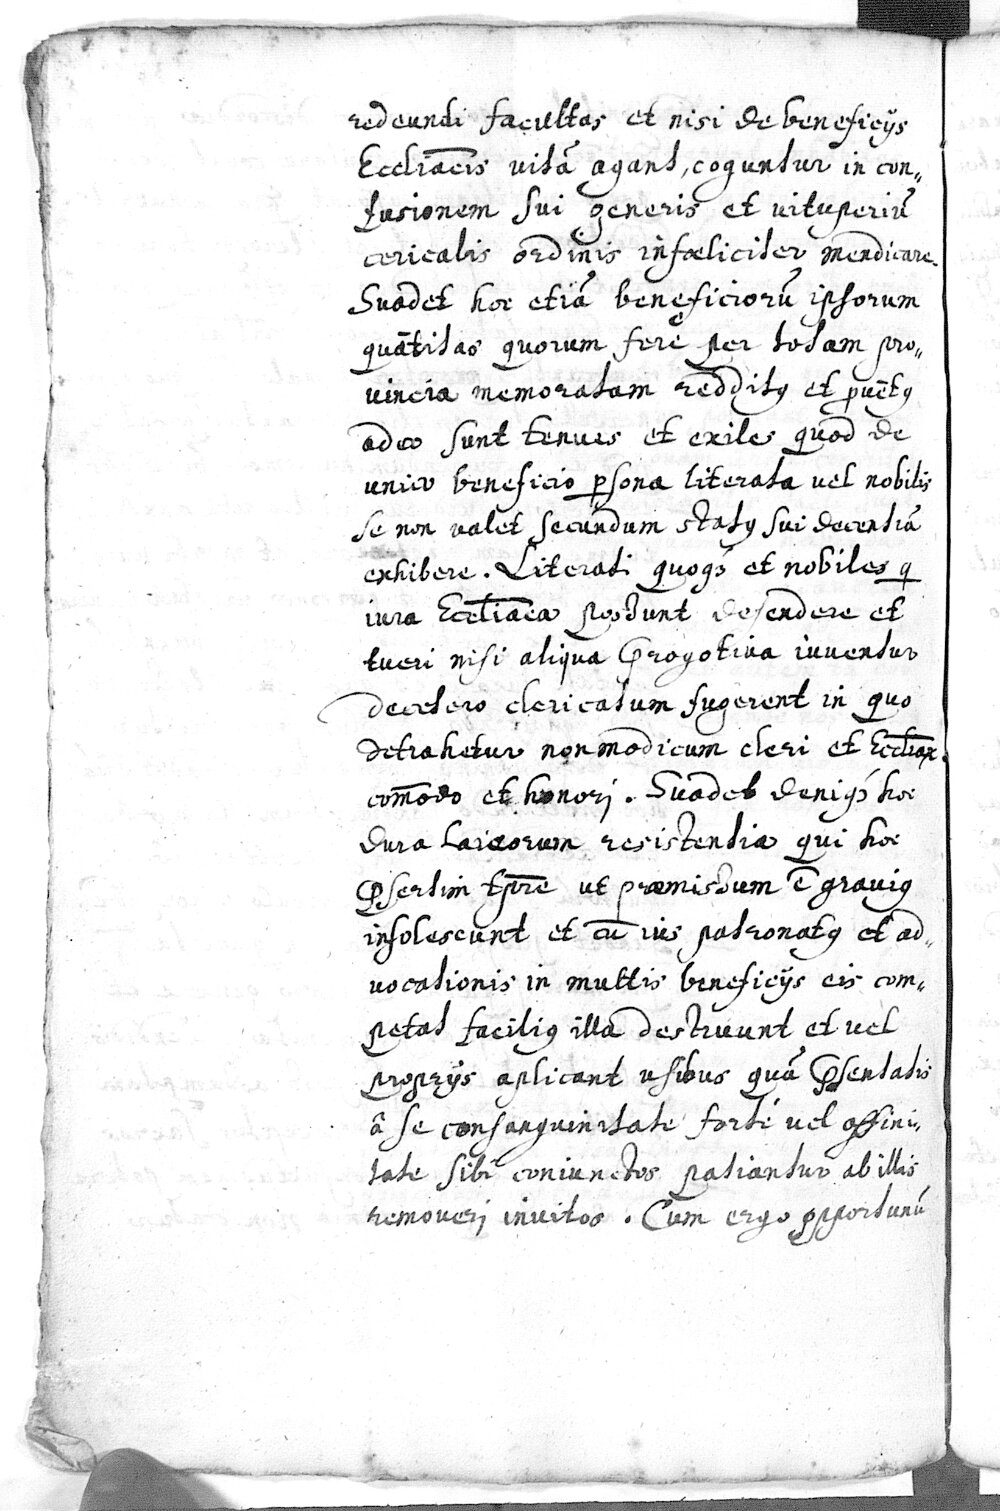 redeundi facultas et nisi de beneficijs
Eccliācis vitā agant, coguntur in con„
fusionem sui generis et vituperiū
cericalis ordinis infœliciter mendicare.
Suadet hoc etiā beneficiorū ipsorum
quātitas quorum ferè per totam pro„
vincia memoratam redditꝰ et pvētꝰ
adeo sunt tenues et exiles quod de
unico beneficio psona literata vel nobilis
se non valet secundum statꝰ sui decentiā
exhibere. Literati quoqꝫ et nobiles q
iura Eccliaca possunt defendere et
tueri nisi aliqua Prrogotiva iuventur
decetero clericatum fugerent in quo
detrahetur non modicum cleri et Eccliaꝝ
com̄odo et honori. Suadet deniqꝫ hoc
dura laicorum resistentia qui hoc
Psertim tpre ut præmissum ē graviꝰ
insolescunt et cū ius patronatꝰ et ad„
vocationis in multis beneficijs eis com„
petat faciliꝰ illa destruunt et vel
proprijs aplicant usibus quā Psentatis
â se consanguinitate forté vel affini„
tate sibi coniunctos patiantur ab illis
removeri invitos. Cum ergo opportunū